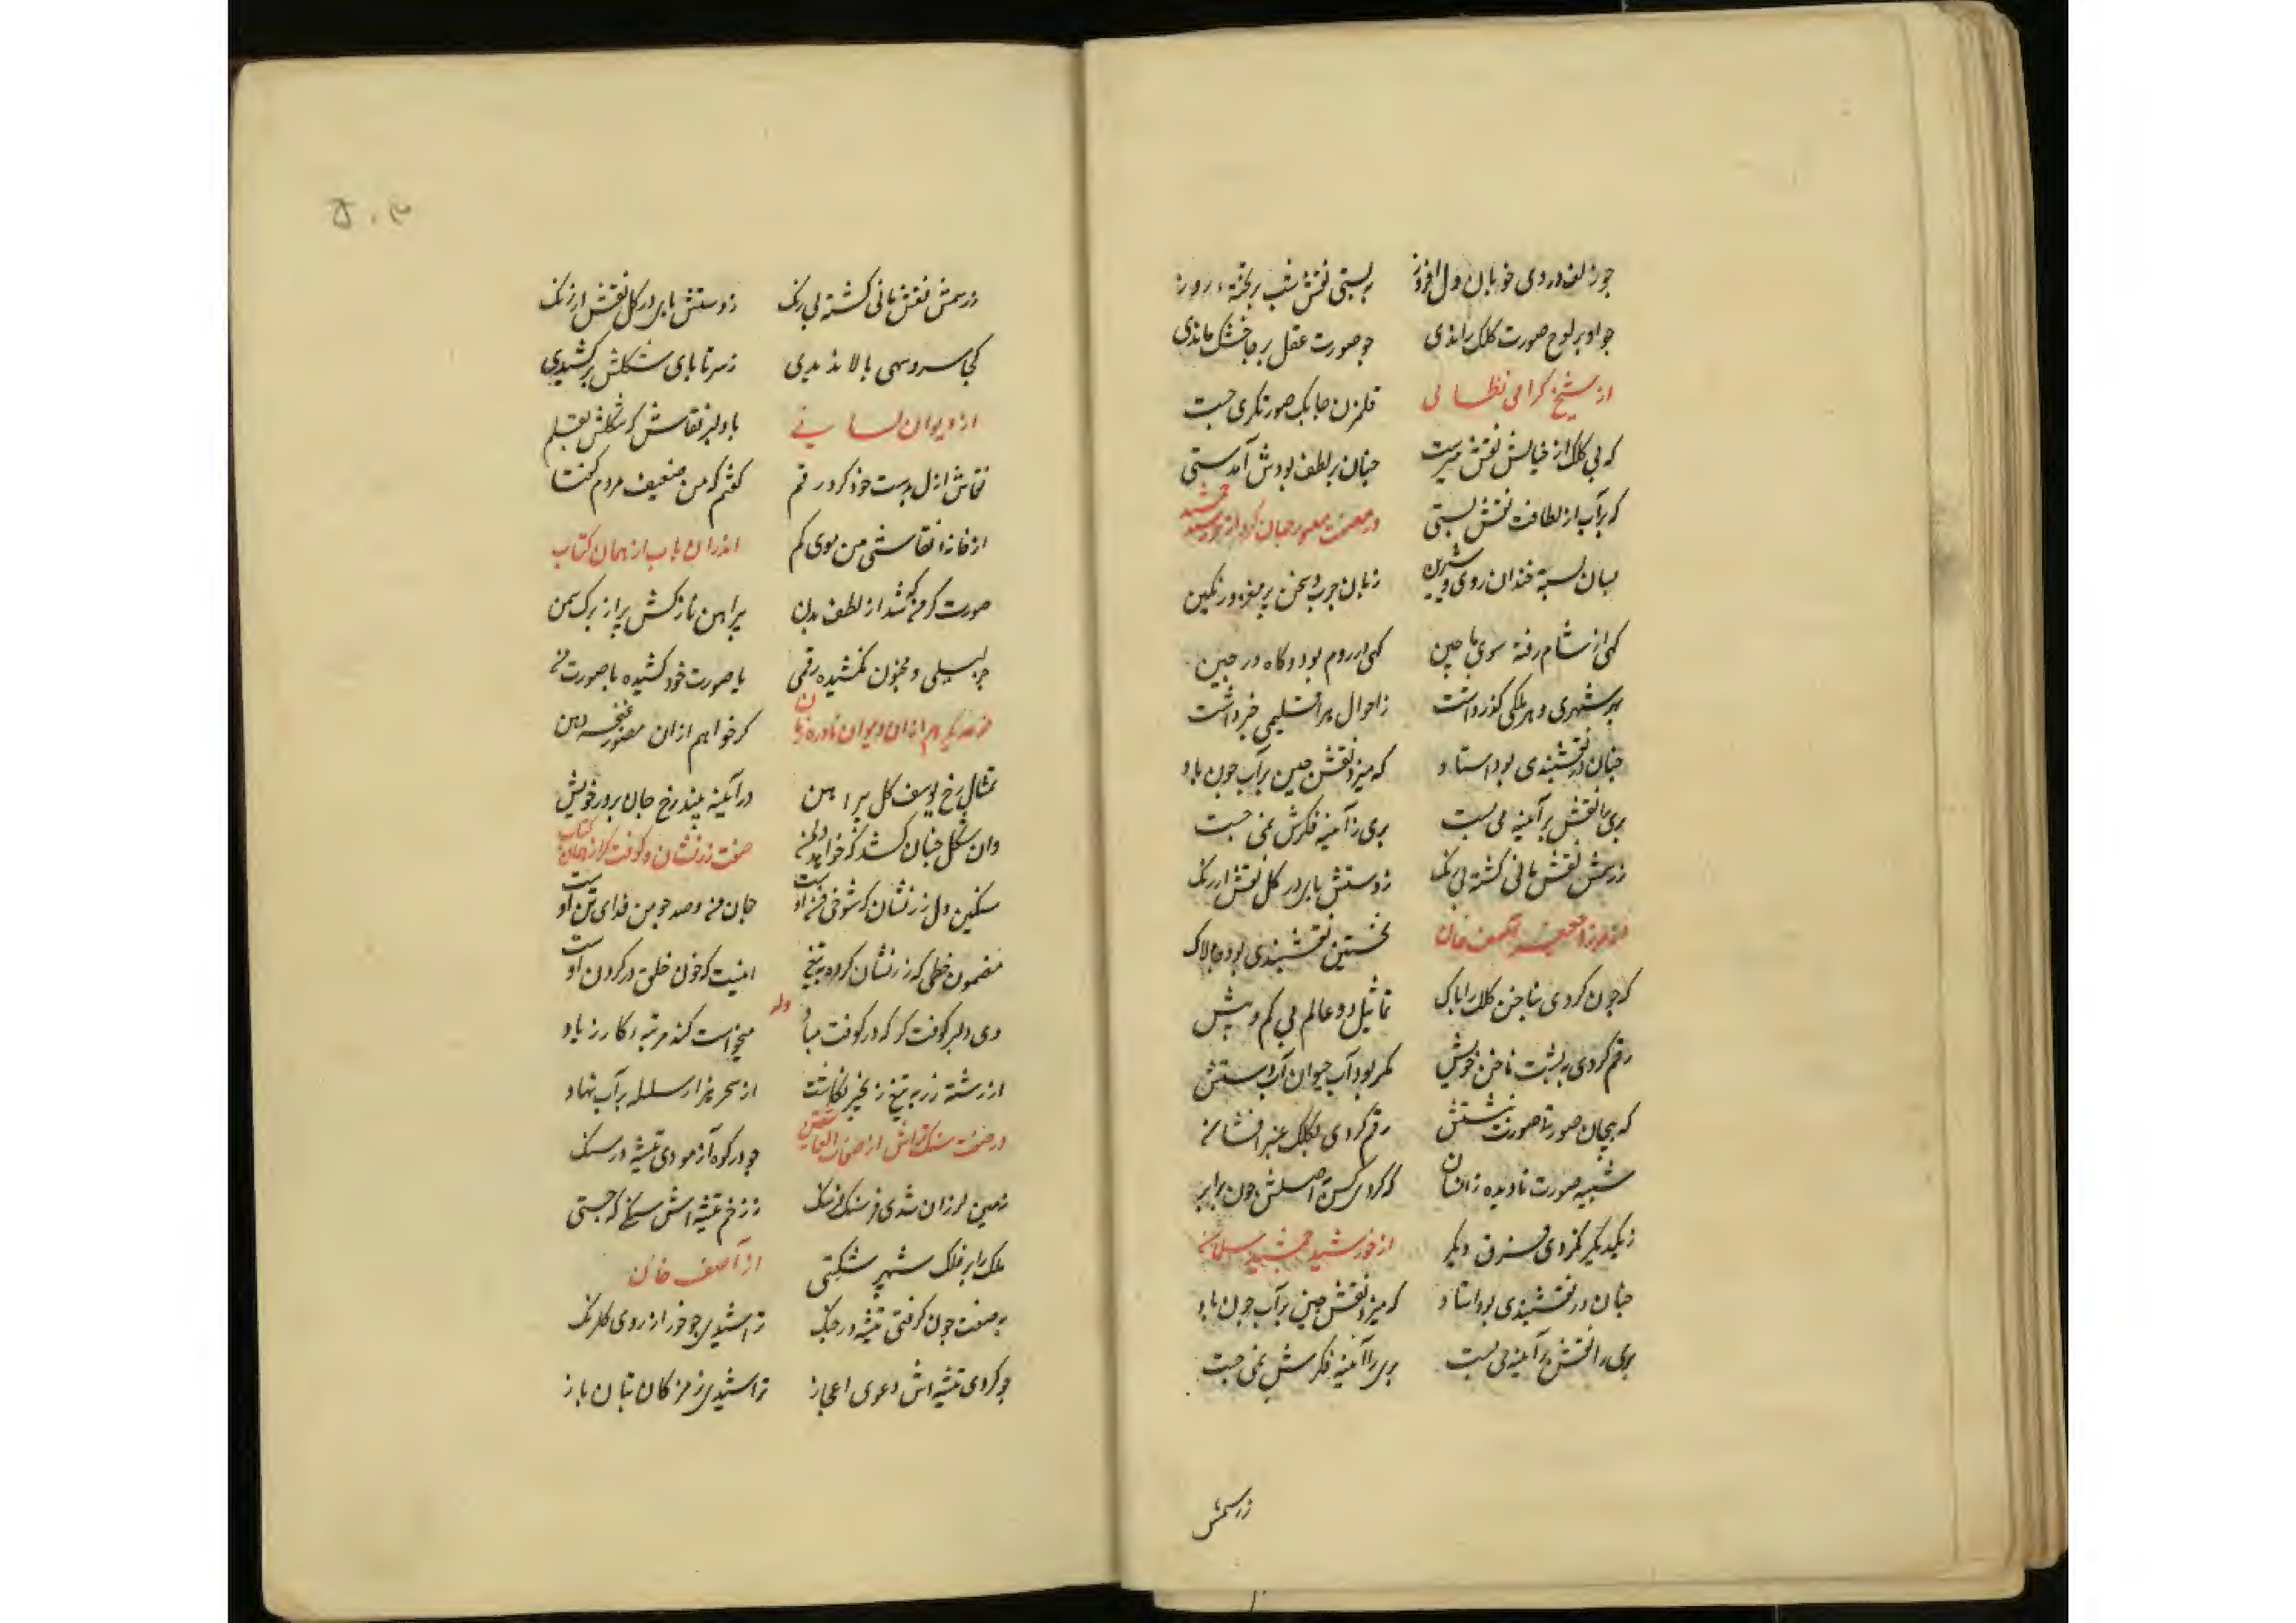 چو زلف و روی خوبان دل افروز ببستی نقش شب بر تخته روز
چو او بر لوح صورت کلک راندی چو صورت عقل بر جا خشک ماندی
از شیخ گرامی نظامی قلمزن چابک صورتگری جست
که بی کلک از خیالش نقش میرست چنان بر لطف بودش آبدستی
که بر آب از لطافت نقش بستی در صفت مصور جهان کرد از خورشید جمشید
لبان بسته خندان روی شیرین زبان چرب و سخن پر مغز و رنگین
گهی از شام رفته سوی ماچین گهی در روم بود و گاه در چین
بهر شهری و هر ملکی گذر داشت ز احوال هر اقلیمی خبر داشت
چنان در نقشبندی بود استاد که میزد نقش چین بر آب چون باد
پری را نقش بر آیینه می بست پری ز آیینه فکرش نمی جست
ز رسمش نقش مانی گشته بی رنگ ز دستش پا بدر گل نقش ارژنگ
از میرزا جعفر آصف خان نخستین نقشبندی بود چالاک
که چون کردی بناخن کلک را پاک تماثیل دو عالم بی کم و بیش
رقم کردی به پشت ناخن خویش مگر بود آب حیوان آبدستش
که بیجان صورتا صورت نشستش رقم کردی بکلک عنبر افشان
شبیه صورت نادیده زانسان که کردی کس باصلش چون برابر
ز یکدیگر نکردی فرق دیگر از خورشید جمشید سلمان
چنان در نقشبندی بود استاد که میزد نقش چین بر آب چون باد
پری را نقش بر آیینه می بست پری را آیینه فکرش نمی جست
ز رسمش
۵۰۳
ز رسمش نقش مانی گشته بی رنگ ز دستش پا بدر گل نقش ارژنگ
کجا سرو سهی بالا بدیدی ز سر تا پای شکلش برکشیدی
از دیوان لسانی با دلبر نقاش که شکلش بقلم
نقاش ازل بدست خود کرد رقم گفتم که من ضعیف مردم گفتا
از خانه نقاشی من موی کم اندران باب از همان کتاب
صورتگر من که شد از لطف بدن پیراهن نازکش پر از برگ سمن
جز لیلی و مجنون نکشیده رقمی یا صورت خود کشیده یا صورت من
هم از ان دیوان نادره زبان گر خواهم از ان مصور غنچه دهن
تمثال رخ یوسف گل پیراهن در آیینه بیند رخ جان پرور خویش
وان شکل چنان کشد که خواهد دل من صفت زرنشان و کوفت گر از همان کتاب
سنگین دل زرنشان که شوخی فن اوست جان من و صد چو من فدای تن اوست
مضمون خطی که زرنشان کرده به تیغ اینست که خون خلق در گردن اوست
وله
دی دلبر کوفت گر که در کوفت مباد میخواست کند مرتبه کار زیاد
از رشته زر به تیغ زنجیر نگاشت از سحر هزار سلسله بر آب نهاد
در صفت سنگ تراش از صفات العاشقین چو در کوه آزمودی تیشه در سنگ
زمین لرزان شدی فرسنگ فرسنگ ز زخم تیشه اش سنگی که جستی
ملک را بر فلک شهپر شکستی از آصف خان
به صنعت چون گرفتی تیشه در چنگ تراشیدی چو خور از روی گلرنگ
چو کردی تیشه اش دعوی اعجاز تراشیدی ز مژگان بتان باز